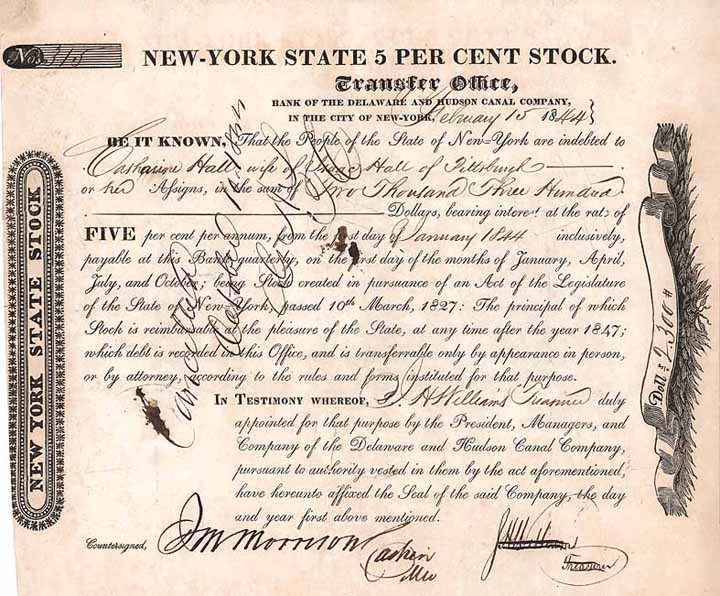 No. 315
NEW-YORK STATE 5 PER CENT STOCK.
Transfer Office,
BANK OF THE DELAWARE AND HUDSON CANAL COMPANY,
IN THE CITY OF NEW-YORK, February 15 1844
BE IT KNOWN, That the People of the State of New=York are indebted to
Catharine Hall, wife of Hall of Pittsburgh
or her Assigns, in the sum of Two Thousand Three Hundred
Dollars, bearing interest at the rate of
FIVE per cent per annum, from the first day of January 1844 inclusively,
payable at this Bank quarterly, on the first day of the months of January, April,
July, and October; being Stock created in pursuance of an Act of the Legislature
of the State of New-York, passed 10th March, 1827: The principal of which
Stock is reimbursable at the pleasure of the State, at any time after the year 1847;
which debt is recorded in this Office, and is transferrable only by appearance in person,
or by attorney, according to the rules and forms instituted for that purpose.
IN TESTIMONY WHEREOF, I. H Williams Treasurer duly
appointed for that purpose by the President, Managers, and
Company of the Delaware and Hudson Canal Company,
pursuant to authority vested in them by the act aforementioned,
have hereunto affixed the Seal of the said Company, the day
and year first above mentioned.
Countersigned, J M Morrison
Cashier
Treasurer
NEW YORK STATE STOCK
Dolls
Cancelled
October